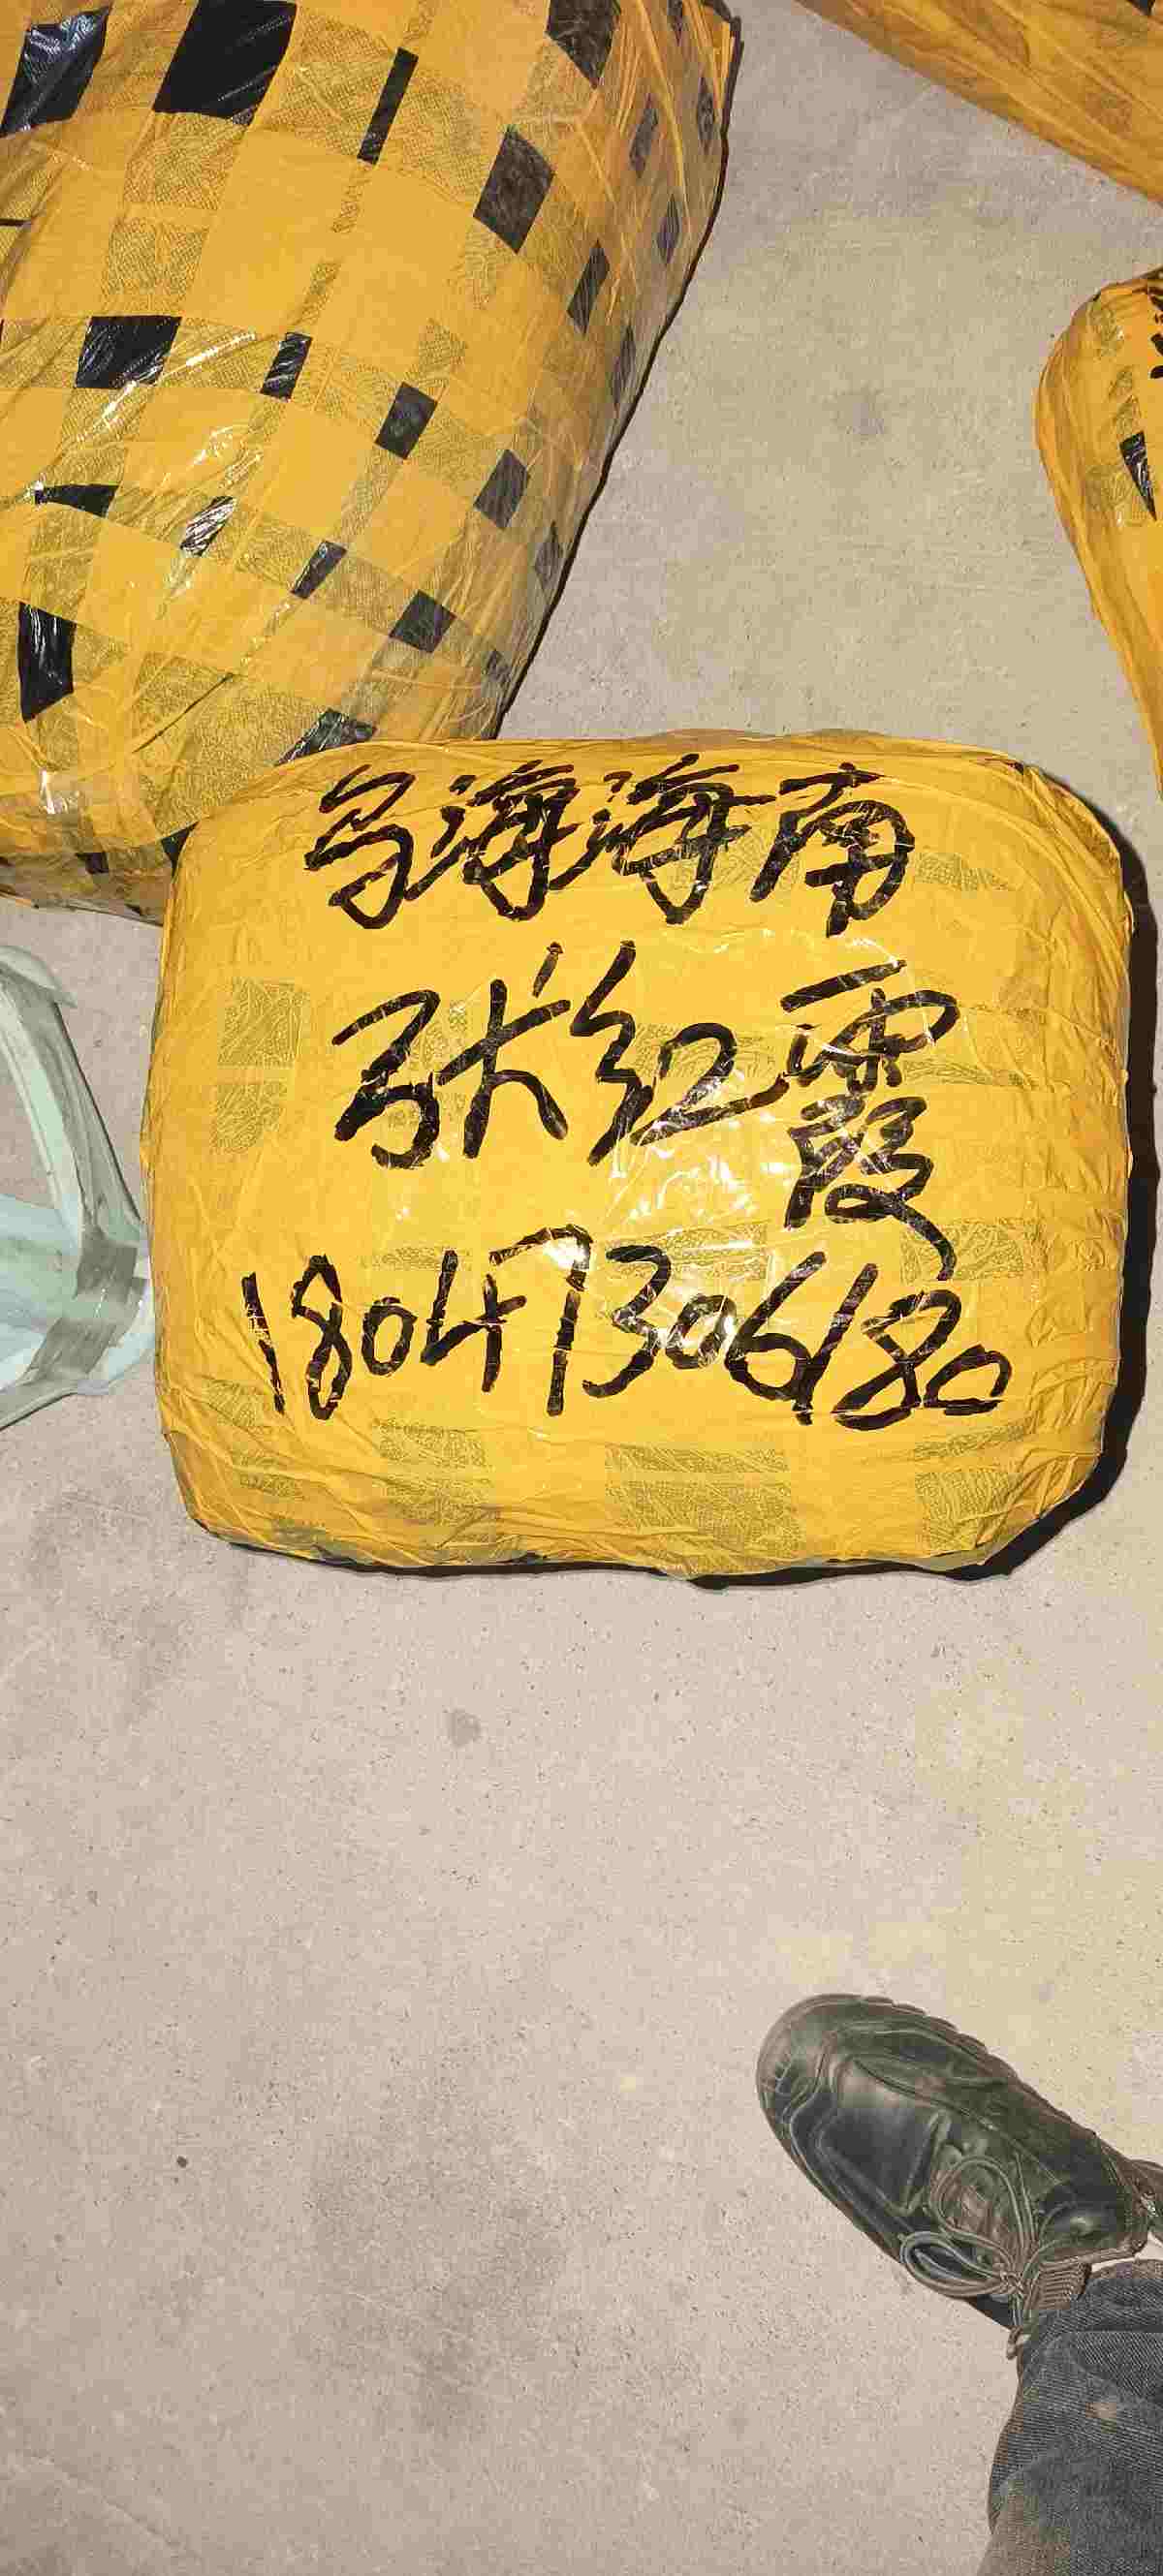 乌海海南
张红霞
18047306180